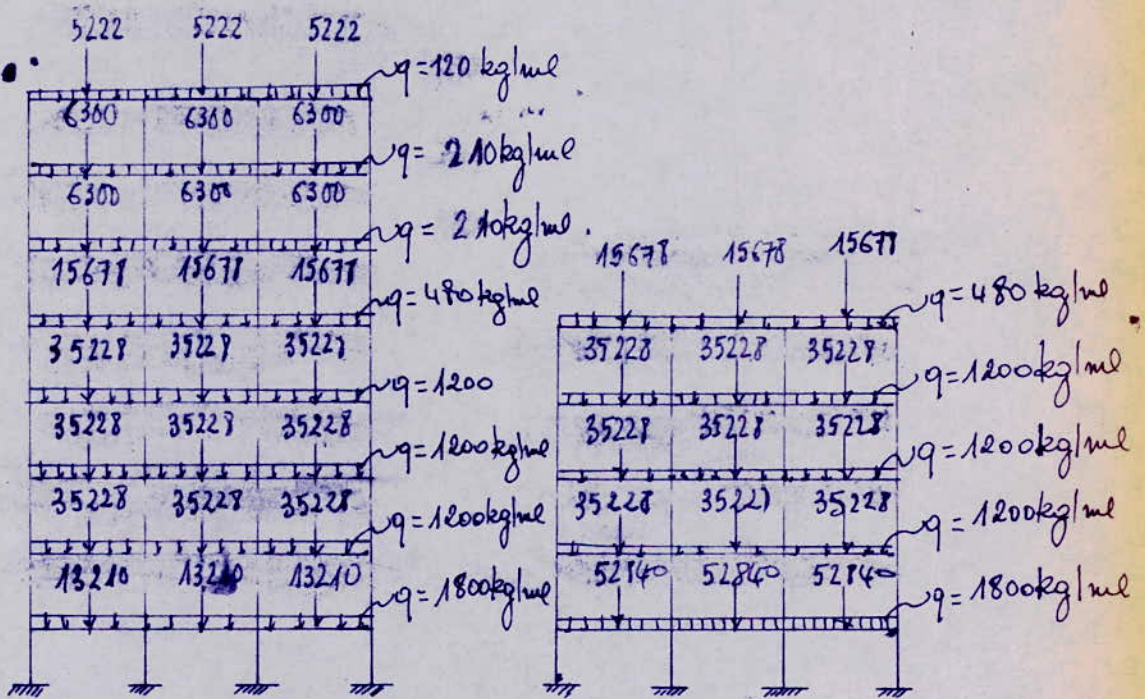 5222 5222 5222
q=120 kg/ml
6300 6300 6300
q= 210kg/ml
6300 6300 6300
q= 210kg/ml.
15678 15678 15678
q=480 kg/ml
35228 35228 35228
q=1200
35228 35228 35228
q=1200kg/ml
35228 35228 35228
q=1200kg/ml
13210 13210 13210
q=1800kg/ml
15678 15678 15678
q=480 kg/ml
35228 35228 35228
q=1200kg/ml
35228 35228 35228
q=1200kg/ml
35228 35228 35228
q=1200kg/ml
52840 52840 52840
q=1800kg/ml